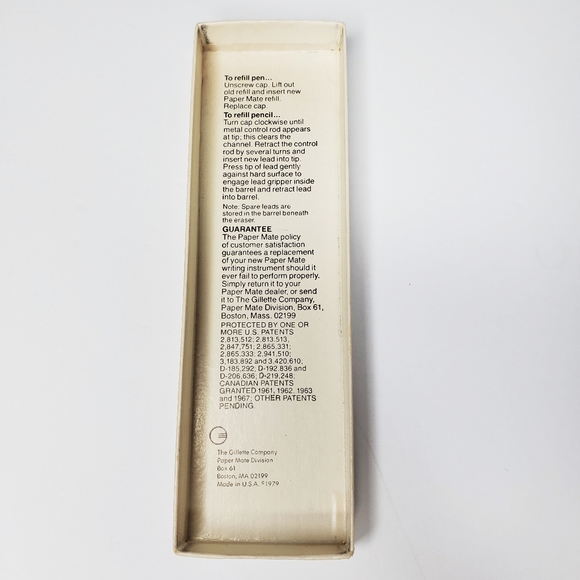 To refill pen...
Unscrew cap. Lift out
old refill and insert new
Paper Mate refill.
Replace cap.
To refill pencil...
Turn cap clockwise until
metal control rod appears
at tip; this clears the
channel. Retract the control
rod by several turns and
insert new lead into tip.
Press tip of lead gently
against hard surface to
engage lead gripper inside
the barrel and retract lead
into barrel.
Note: Spare leads are
stored in the barrel beneath
the eraser.
GUARANTEE
The Paper Mate policy
of customer satisfaction
guarantees a replacement
of your new Paper Mate
writing instrument should it
ever fail to perform properly.
Simply return it to your
Paper Mate dealer, or send
it to The Gillette Company,
Paper Mate Division, Box 61,
Boston, Mass. 02199
PROTECTED BY ONE OR
MORE U.S. PATENTS
2,813,512; 2,813,513,
2,847,751; 2,865,331;
2,865,333; 2,941,510;
3,183,892 and 3,420,610;
D-185,292; D-192,836 and
D-206,636; D-219,248;
CANADIAN PATENTS
GRANTED 1961, 1962, 1963
and 1967; OTHER PATENTS
PENDING
The Gillette Company
Paper Mate Division
Box 61
Boston, MA 02199
Made in U.S.A. ©1979